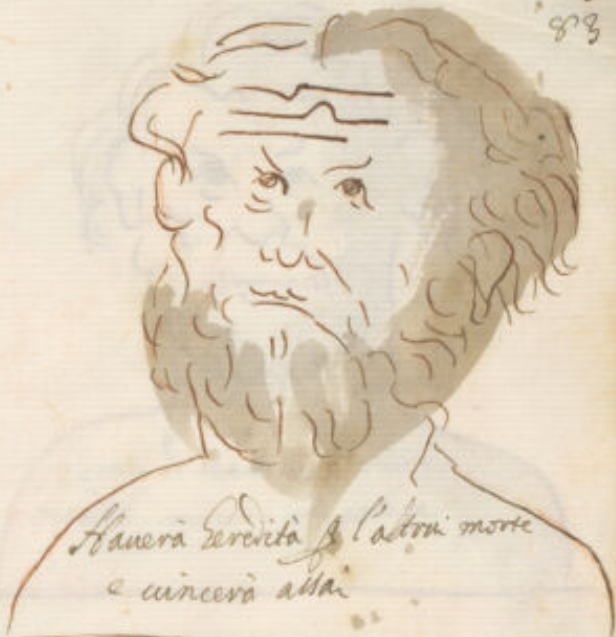 83
Hauerà heredità p l'altrui morte
e uincerà assai